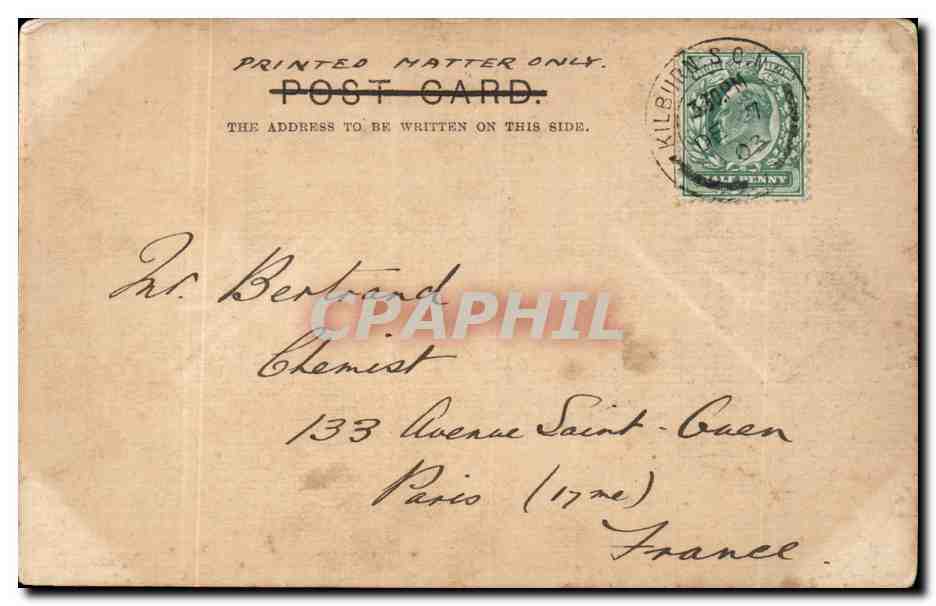 PRINTED MATTER ONLY.
POST CARD.
THE ADDRESS TO BE WRITTEN ON THIS SIDE.
KILBURN. S.O.
PM
03
HALF PENNY
Mr. Bertrand
CPAPHIL
Chemist
133 Avenue Saint-Ouen
Paris (17me)
France